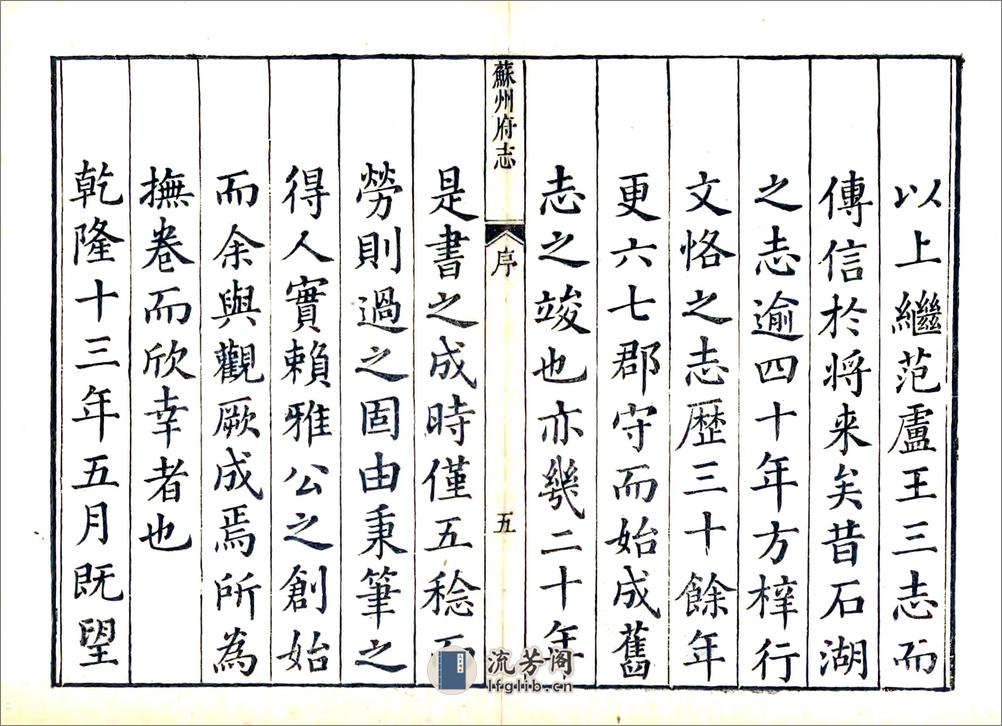 以上繼范盧王三志而
傳信於將来矣昔石湖
之志逾四十年方梓行
文恪之志歷三十餘年
更六七郡守而始成舊
志之竣也亦幾二十年
蘇州府志
序
五
是書之成時僅五稔而
勞則過之固由秉筆之
得人實賴雅公之創始
而余與觀厥成焉所為
撫卷而欣幸者也
乾隆十三年五月既望
流芳阁
lfglib.cn